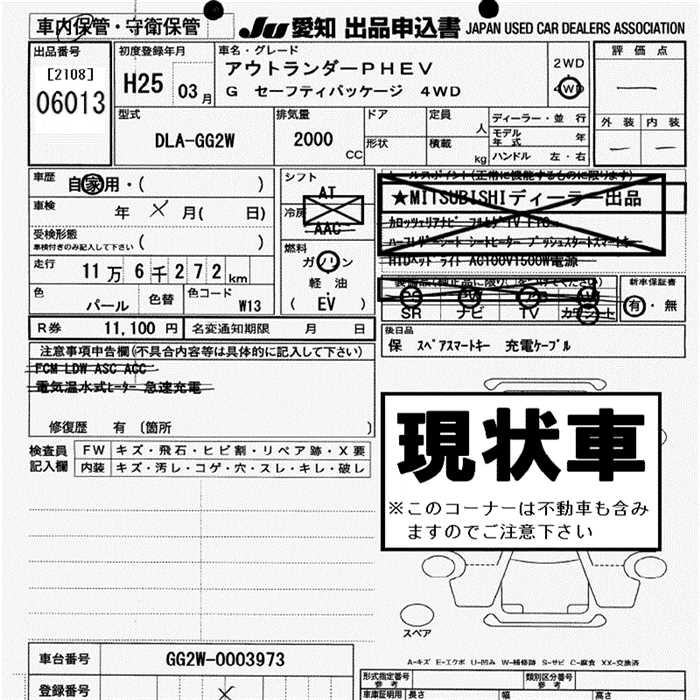 車内保管・守衛保管
JU 愛知 出品申込書 JAPAN USED CAR DEALERS ASSOCIATION
出品番号
[2108]
06013
初度登録年月
H25 03 月
車名・グレード
アウトランダーPHEV
G セーフティパッケージ 4WD
2WD
4WD
評価点
外装 内装
型式
DLA-GG2W
排気量
2000 CC
ドア
形状
定員 人
積載 kg
ディーラー・並行
モデル年式 年
ハンドル 左・右
車歴
自家用・( )
車検
年 月( 日)
受検形態
車検付きのみ記入して下さい ( )
走行
11万6千272km
色
パール
色替
色コード
W13
シフト
AT
冷房
AAC
燃料
ガソリン
軽油・
( EV )
セールスポイント(正常に機能するものに限ります)
★MITSUBISHIディーラー出品
カロッツェリアナビ フルセグTV ETC
ハーフレザーシート シートヒーター プッシュスタートスマートキー
HIDヘッドライト AC100V1500W電源
装備品(純正品に限り○をしてください)
SR ナビ TV カワシート
新車保証書
有・無
R券 11,100 円 名変通知期限 月 日
後日品
保 スペアスマートキー 充電ケーブル
注意事項申告欄(不具合内容等は具体的に記入して下さい)
FCM LDW ASC ACC
電気温水式ヒーター 急速充電
修復歴 有 〔箇所 〕
検査員記入欄
FW キズ・飛石・ヒビ割・リペア跡・X要
内装 キズ・汚レ・コゲ・穴・スレ・キレ・破レ
現状車
※このコーナーは不動車も含み
ますのでご注意下さい
スペア
A-キズ E-エクボ U-凹み W-補修跡 S-サビ C-腐食 XX-交換済
車台番号 GG2W-0003973
登録番号
形式指定番号
参考
類別区分番号
参考
車庫証明用
長さ 幅 高さ